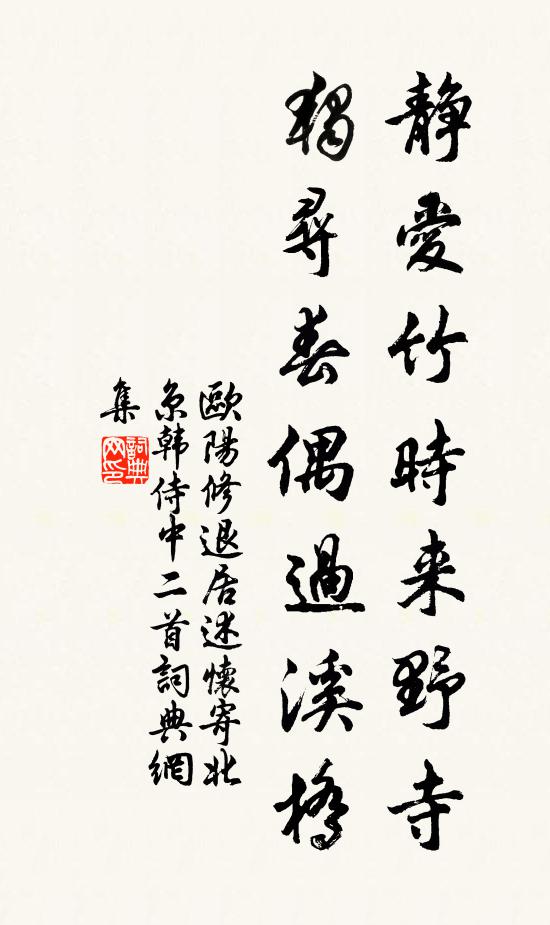 靜愛竹時来野寺
獨尋春偶過溪橋
歐陽修退居述懷寄北
京韩侍中二首詞典網
集
詞典
网印